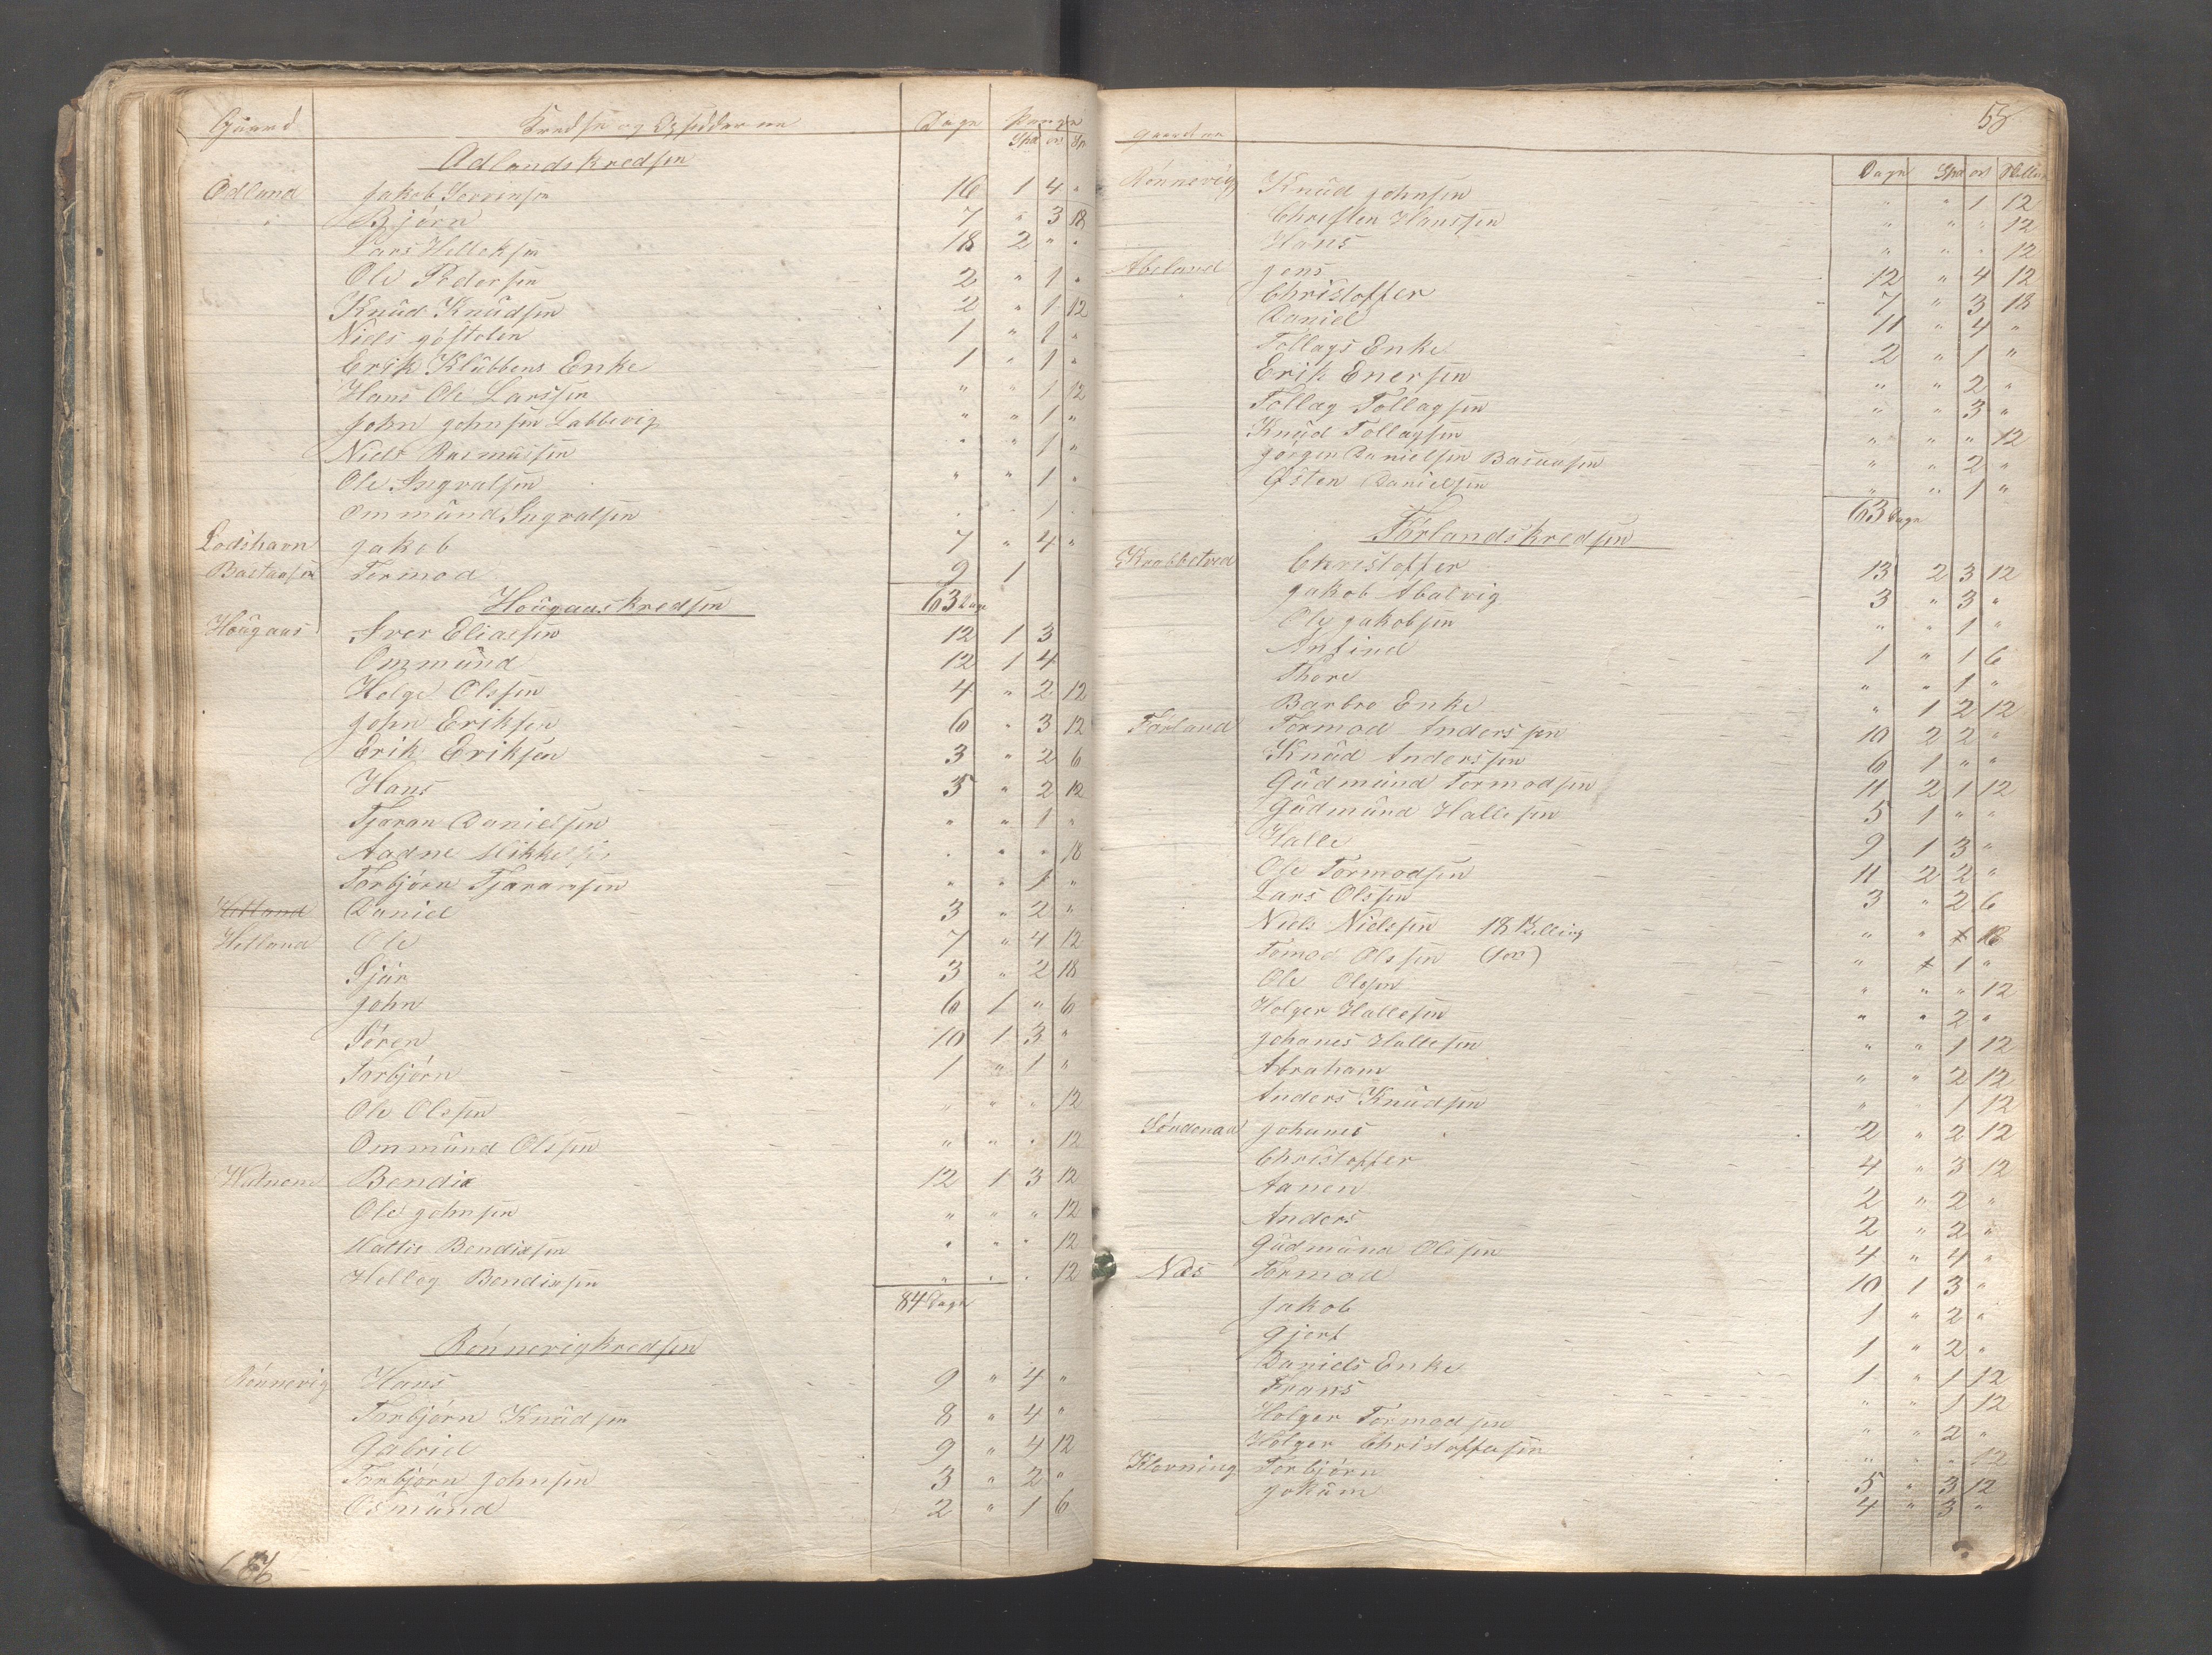 Gaard Kredsen og Opsidderne Dage Penge
Spd ort Sk
Adlandskredsen
Adland Jakob Sørrensen 16 1 4 "
" Bjørn 7 " 3 18
Lars Helleksen 18 2 " "
Ole Pedersen 2 " 1 "
Knud Knudsen 2 " 1 12
Niels 1 " 1 "
Erik Klubbens Enke 1 " 1 "
Hans Ole Larssen " " 1 12
John Johnsen Labbevig " " 1 "
Niels Rasmussen " " 1 "
Ole Ingvalsen " " 1 "
Ommund Ingvalsen " " 1 "
Lodshavn Jakob 7 " 4 "
Bastansen Tormod 9 1
Hougaaskredsen 63 Dage
Hougaas Iver Eliassen 12 1 3
Ommund 12 1 4
Helge Olssen 4 " 2 12
John Eriksen 6 " 3 12
Erik Eriksen 3 " 2 6
Hans 5 " 2 12
Tjøran Danielsen " " 1 "
Aadne Mikkelsen " " " 18
Torbjørn Tjøransen " " 1 "
Hetland Daniel 3 " 2 "
Hetland Ole 7 " 4 12
Sjur 3 " 2 18
John 6 1 " 6
Søren 10 1 3 "
Torbjørn 1 " 1 "
Ole Olssen " " " 12
Ommund Olssen " " " 12
Watnem Bendix 12 1 3 12
Ole Johnsen " " " 12
Mattis Bendixsen " " " 12
Helleg Bendixsen " " " 12
84 Dage
Rønnevigkredsen
Rønnevig Hans 9 " 4 "
Torbjørn Knudsen 8 " 4 "
Gabriel 9 " 4 12
Torbjørn Johnsen 3 " 2 "
Osmund 2 " 1 6
58
Gaardene Dage Spd ort Skilling
Rønnevig Knud Johnsen " " 1 12
Christen Hanssen " " " 12
Hans " " " 12
Abeland Jens 12 " 4 12
Christoffer 7 " 3 18
Daniel 11 " 4 "
Tollags Enke 2 " 1 "
Erik Enersen " " 2 "
Tollag Tollagsen " " 3 "
Knud Tollagsen " " " 12
Jørgen Danielsen " " 2 "
Østen Danielsen " " 1 "
63 Dage
Førlandskredsen
Krabbetved Christoffer 13 2 3 12
Jakob Abalvig 3 " 3 "
Ole Jakobsen " " 1 "
Anfind 1 " 1 6
Thore " " 1 "
Barbro Enke " 1 2 12
Førland Tormod Anderssen 10 2 2 "
Knud Anderssen 6 1 " "
Gudmund Tormodsen 11 2 1 12
Gudmund Hallesen 5 1 " "
Halle 9 1 3 "
Ole Tormodsen 11 2 2 "
Lars Olssen 3 " 2 6
Niels Nielssen 18 Skilling " " 18
Tomod Olssen " 1 "
Ole Olssen " " " 12
Holger Hallesen " " 2 "
Johanes Hallesen " " 1 12
Abraham " " 2 12
Anders Knudsen " " 1 12
Søndenaa Johanes 2 " 2 12
Christoffer 4 " 3 12
Aanen 2 " 2 "
Anders 2 " 2 "
Gudmund Olssen 4 " 4 "
Næs Tormod 10 1 3 "
Jakob 1 " 2 "
Gjert 1 " 2 "
Daniels Enke 1 " 1 12
Frans " " 1 12
Holger Tormodsen " " 2 "
Holger Christoffersen " " " 12
Kløvning Torbjørn 5 " 3 12
Jokum 4 " 3 "